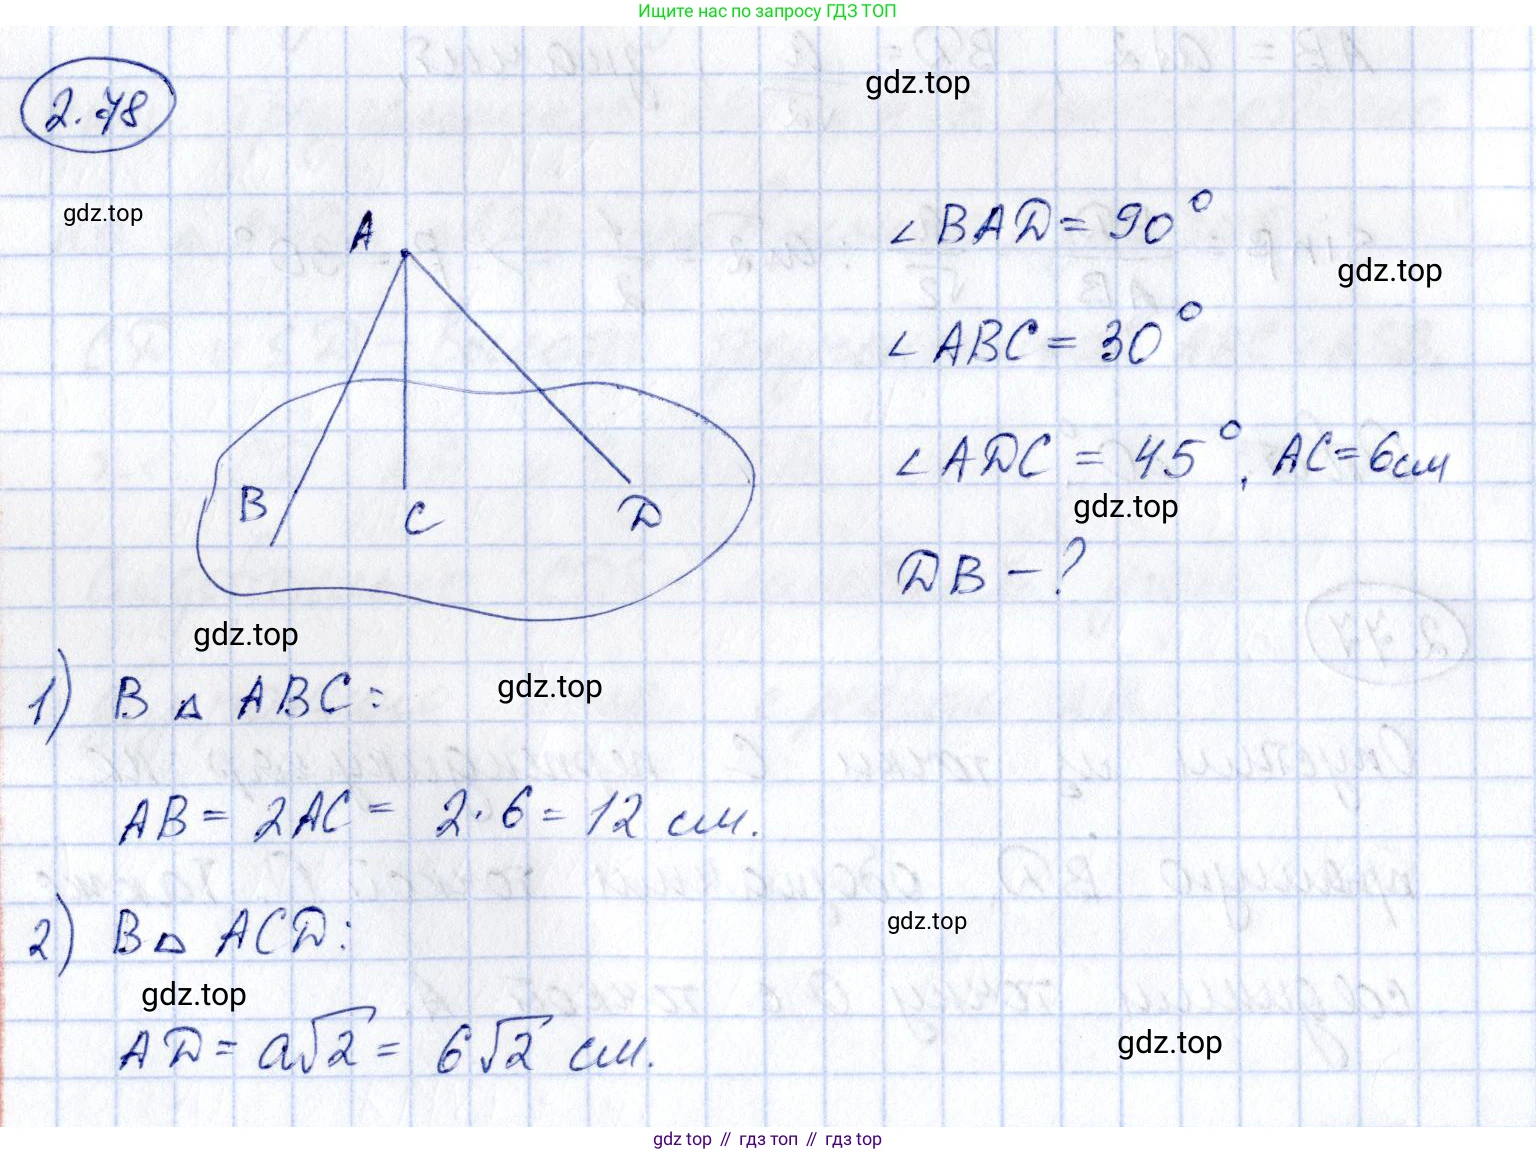 Ищите нас по запросу ГДЗ ТОП
2.78
gdz.top
gdz.top
A
∠BAD = 90°
gdz.top
∠ABC = 30°
∠ADC = 45°, AC = 6 см
gdz.top
B
C
D
DB - ?
gdz.top
1) В △ ABC:
gdz.top
AB = 2AC = 2·6 = 12 см.
2) В △ ACD:
gdz.top
gdz.top
AD = a√2 = 6√2 см.
gdz.top
gdz top // гдз топ // гдз top